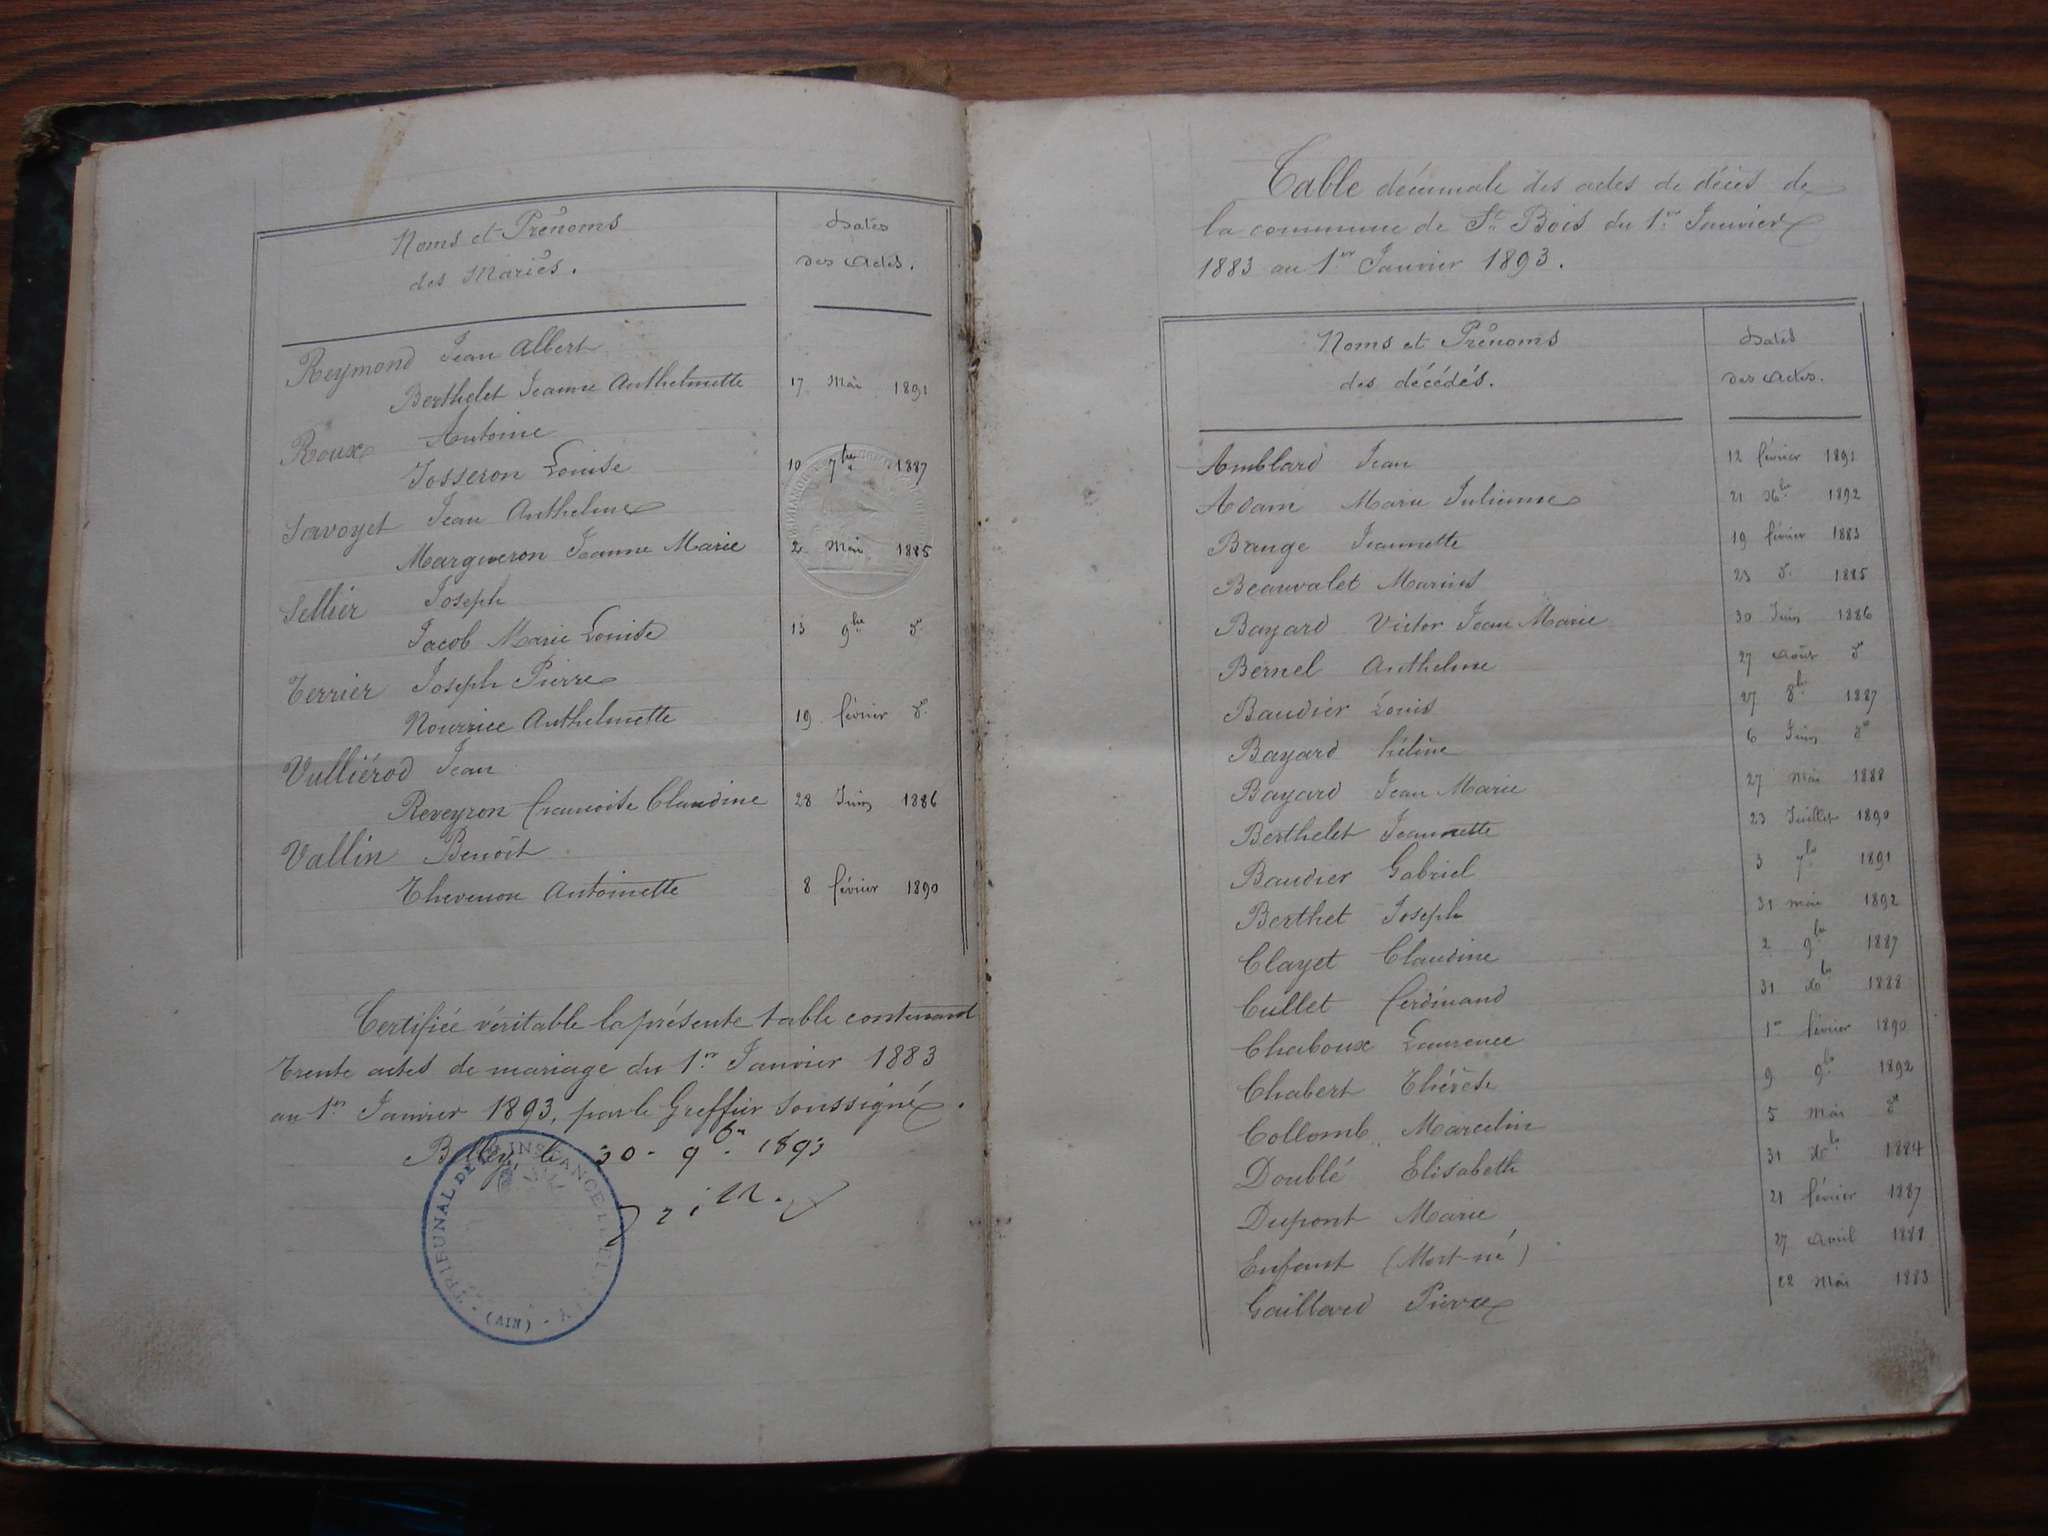 Noms et Prénoms
des Mariés.
Dates
des Actes.
Reymond Jean Albert
Berthelet Jeanne Anthelmette 17 Mai 1891
Roux Antoine
Josseron Louise 10 7bre 1887
Savoyet Jean Anthelme
Margueron Jeanne Marie 2 Mai 1885
Sellier Joseph
Jacob Marie Louise 13 9bre do
Terrier Joseph Pierre
Nourrice Anthelmette 19 février do
Vulliérod Jean
Reveyron Francoise Claudine 28 Juin 1886
Vallin Benoît
Thevenon Antoinette 8 février 1890
Certifiée véritable la présente table contenant
trente actes de mariage du 1er Janvier 1883
au 1er Janvier 1893, par le Greffier soussigné.
Belley, le 30 - 9bre 1893
TRIBUNAL DE INSTANCE
(AIN)
Table décennale des actes de décès de
la commune de St Bois du 1er Janvier
1883 au 1er Janvier 1893.
Noms et Prénoms
des décédés.
Dates
des Actes.
Amblard Jean 12 février 1891
Adam Marie Julienne 21 Xbre 1892
Bauge Jeannette 19 février 1883
Beauvalet Marius 23 do 1885
Bayard Victor Jean Marie 30 Juin 1886
Bernel Anthelme 27 Août do
Baudier Louis 27 8bre 1887
Bayard Hélène 6 Juin do
Bayard Jean Marie 27 Mai 1888
Berthelet Jeannette 23 Juillet 1890
Baudier Gabriel 3 7bre 1891
Berthet Joseph 31 mai 1892
Clayet Claudine 2 9bre 1887
Cullet Ferdinand 31 Xbre 1888
Chaboux Laurence 1er février 1890
Chabert Thérèse 9 9bre 1892
Collomb Marcelin 5 Mai do
Doublé Elisabeth 31 Xbre 1884
Dupont Marie 21 février 1887
Enfant (Mort-né) 27 Avril 1888
Gaillard Pierre 22 Mai 1883